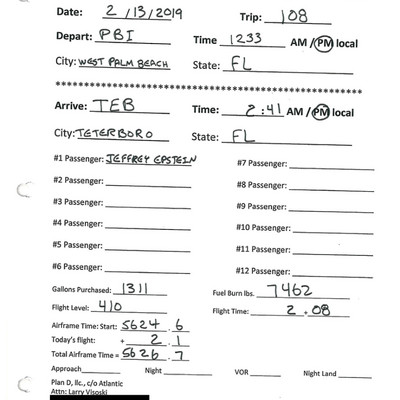 Date: 2/13/2019 Trip: 108
Depart: PBI Time 1233 AM / PM local
City: WEST PALM BEACH State: FL
************************************************************
Arrive: TEB Time: 2:41 AM / PM local
City: TETERBORO State: FL
#1 Passenger: JEFFREY EPSTEIN #7 Passenger:
#2 Passenger: #8 Passenger:
#3 Passenger: #9 Passenger:
#4 Passenger: #10 Passenger:
#5 Passenger: #11 Passenger:
#6 Passenger: #12 Passenger:
Gallons Purchased: 1311 Fuel Burn lbs. 7462
Flight Level: 410 Flight Time: 2.08
Airframe Time: Start: 5624.6
Today's flight: + 2.1
Total Airframe Time = 5626.7
Approach Night VOR Night Land
Plan D, llc., c/o Atlantic
Attn: Larry Visoski